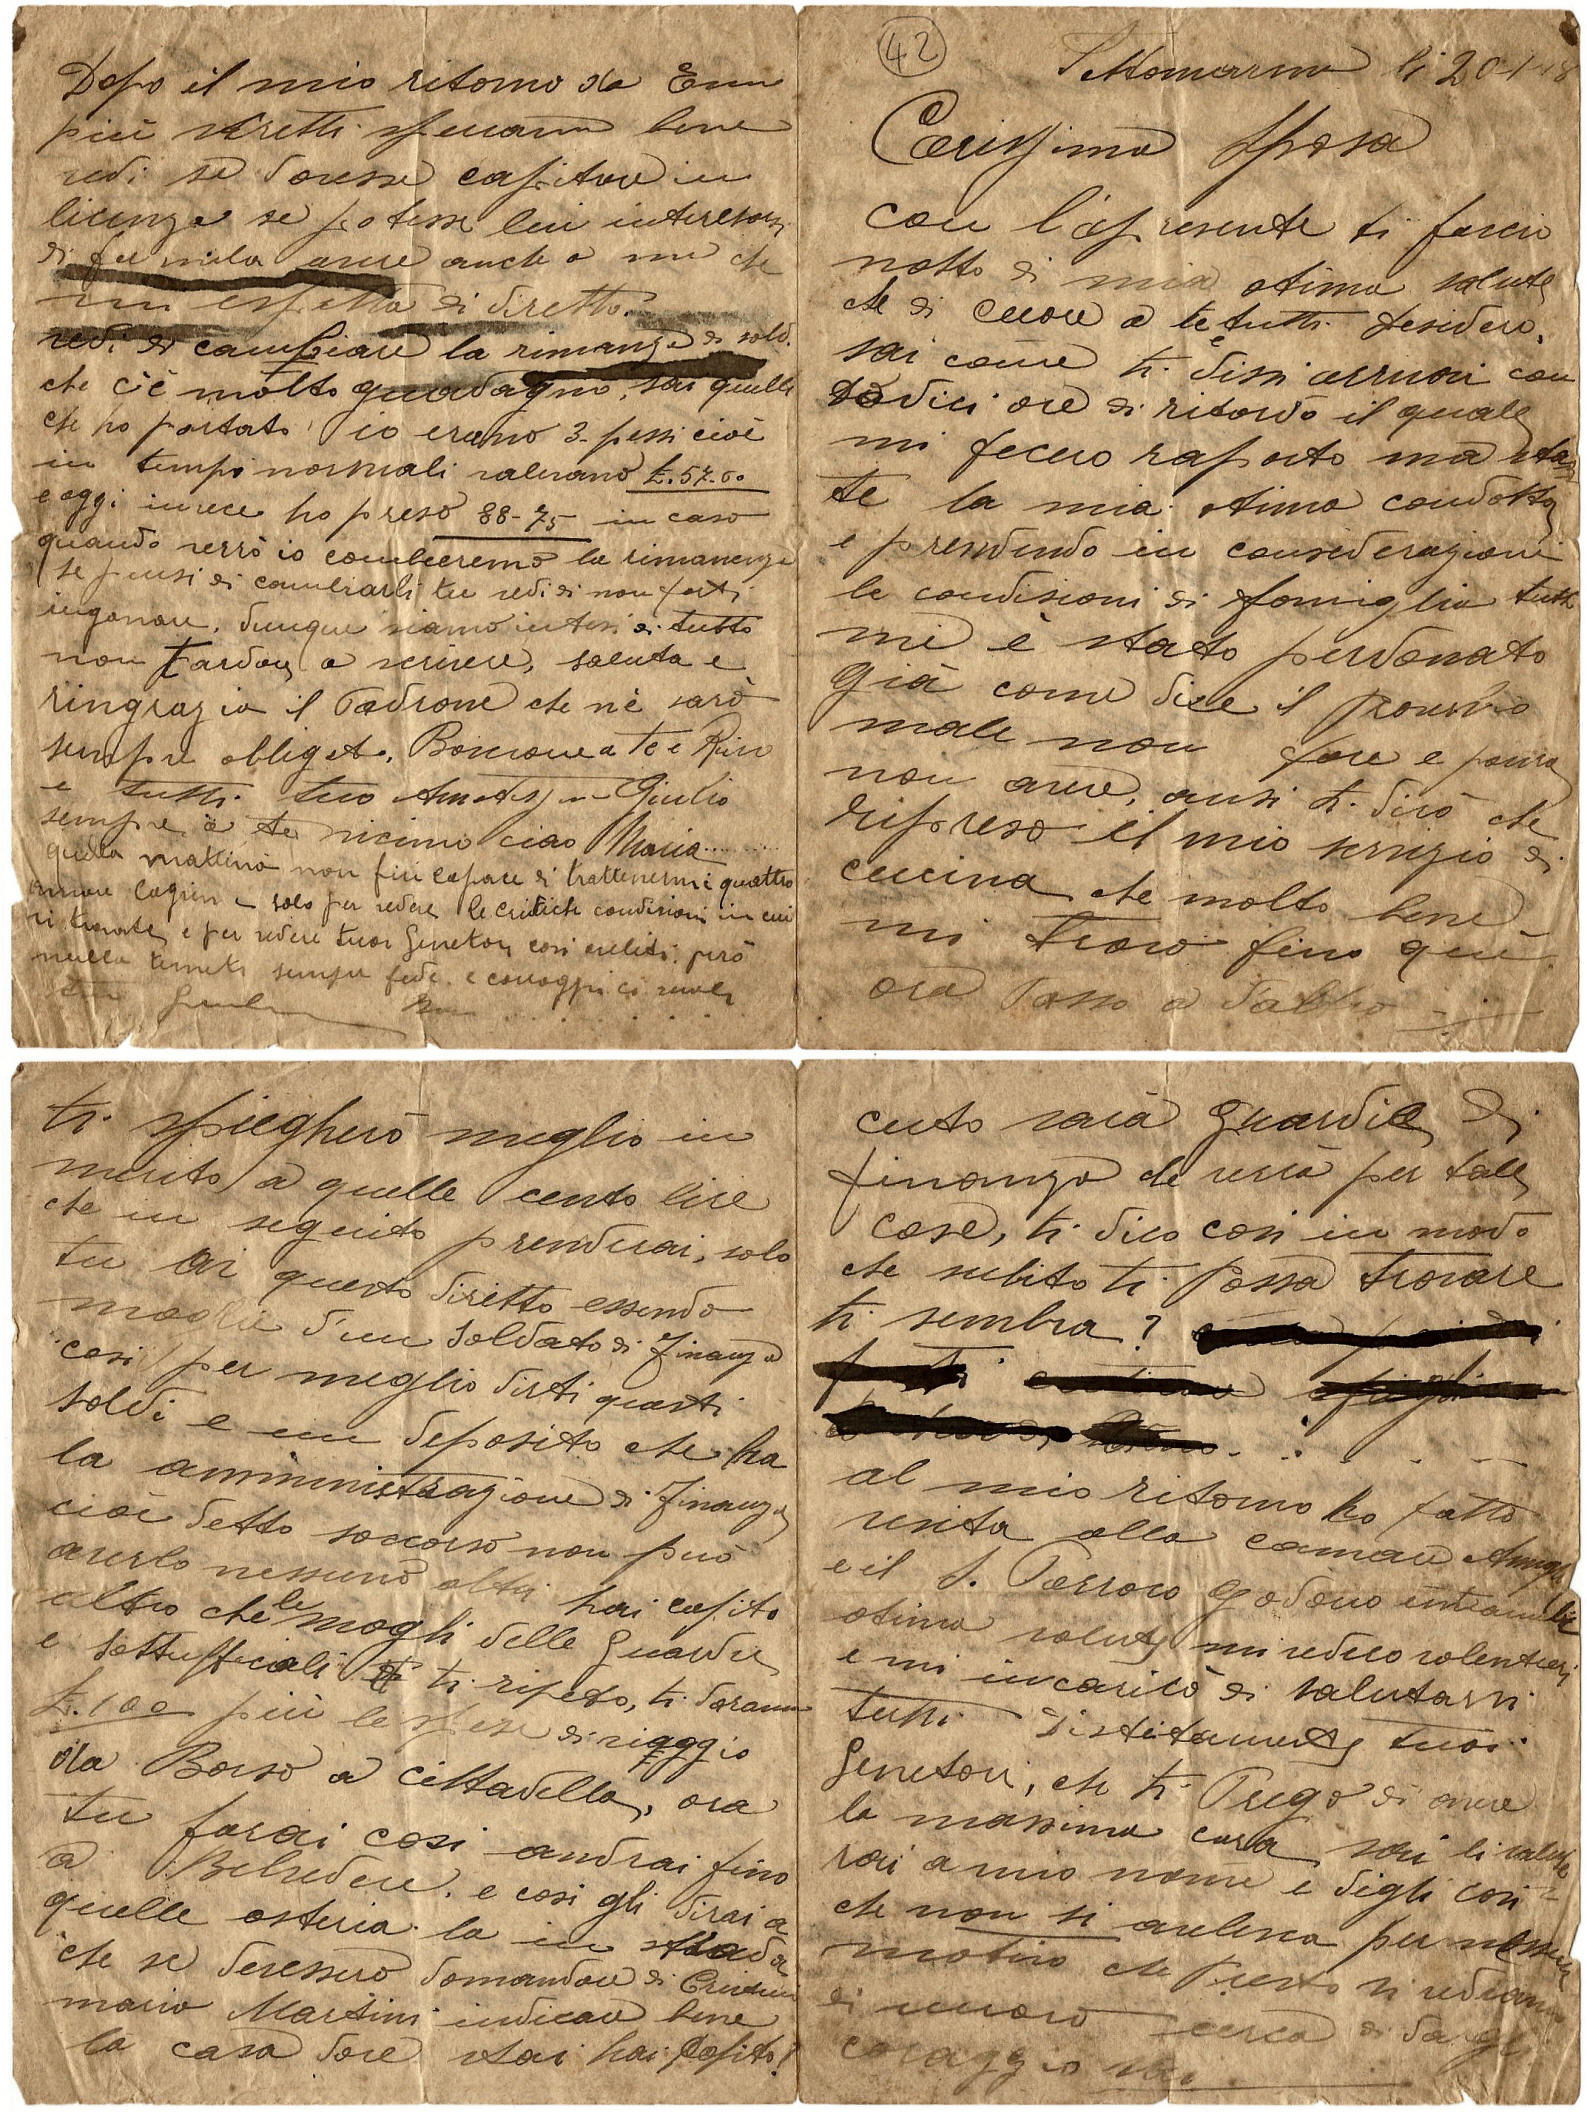 42
Settomarina li 20-1-18
Carissima Sposa
con l'apresente ti faccio
notto di mia otima salute
che di cuore a te e tutti desidero.
sai come ti dissi arrivai con
dodici ore di ritardo il quale
mi fecero raporto ma stan
te la mia otima condotta
e prendendo in considerazioni
le condisioni di famiglia tutto
mi è stato perdonato
già come dice il proverbio
male non fare e paura
non avere, ansi ti dirò che
ripreso il mio servizio di
cucina che molto bene
mi trovo fino qui.
ora Passo a daltro
ti spiegherò meglio in
merito a quelle cento lire
che in seguito prenderai, solo
tu ai questo diretto essendo
moglie d'un Soldato di Finanza
cosi per meglio dirti questi
soldi e un deposito che ha
la amministrazione di Finanza
cioè detto soccorso non può
averlo nessuno altri hai capito
altro che le mogli delle Guardie
e sottufficiali ti ripeto, ti daranno
£.100 più le spese di viaggio
da Borso a cittadella, ora
tu farai cosi andrai fino
a Belvedere. e cosi gli dirai a
quelle osteria la in strada
che se dovessero domandare di
maria Martini indicare bene
la casa dove stai hai capito!
certo sarà Guardie di
finanza che verrà per tale
cose, ti dico cosi in modo
che subito ti Possa trovare
ti sembra?
al mio ritorno ho fatto
visita alla comare
e il S. Parroco godono
otima salute mi vedero volentieri
e mi incaricò di salutarvi
tutti distitamente tuoi
Genetori, che ti Prego di avere
la massima cura, sai li salute
rai a mio nome e digli cosi
che non si avelisca per nessun
motivo che Presto vi rediamo
di nuovo cerca di dargli
coraggio
Dopo il mio ritorno da
più stretti speriamo bene
vedi se dovesse capitare in
licenza se potesse lui interesarsi
di fermela avere anche a me che
mi espetta di diretto.
vedi di cambiare la rimanza di soldi
che c'è molto guadagno, sai quelle
che ho portato io erano 3 pessi cioè
in tempi normali valevano £.57.60
e oggi invece ho preso 88-75 in caso
quando verrò io cambieremo la rimanenza
se pensi di cambiarli tu vedi di non farti
inganare, dunque siamo intesi di tutto
non tardare a scrivere, saluta e
ringrazia il Padrone che n'è sarò
sempre obligato. Bacione a te e
e tutti tuo Giulio
sempre a te vicino ciao Maria.........
quella mattina non fui capace di trattenermi quattro
amare lagrime solo per vedere le critiche condisioni in cui
vi trovate e per vedere tuoi Genetori cosi aveliti. però
nulla temete sempre fede e coraggio ci vuole